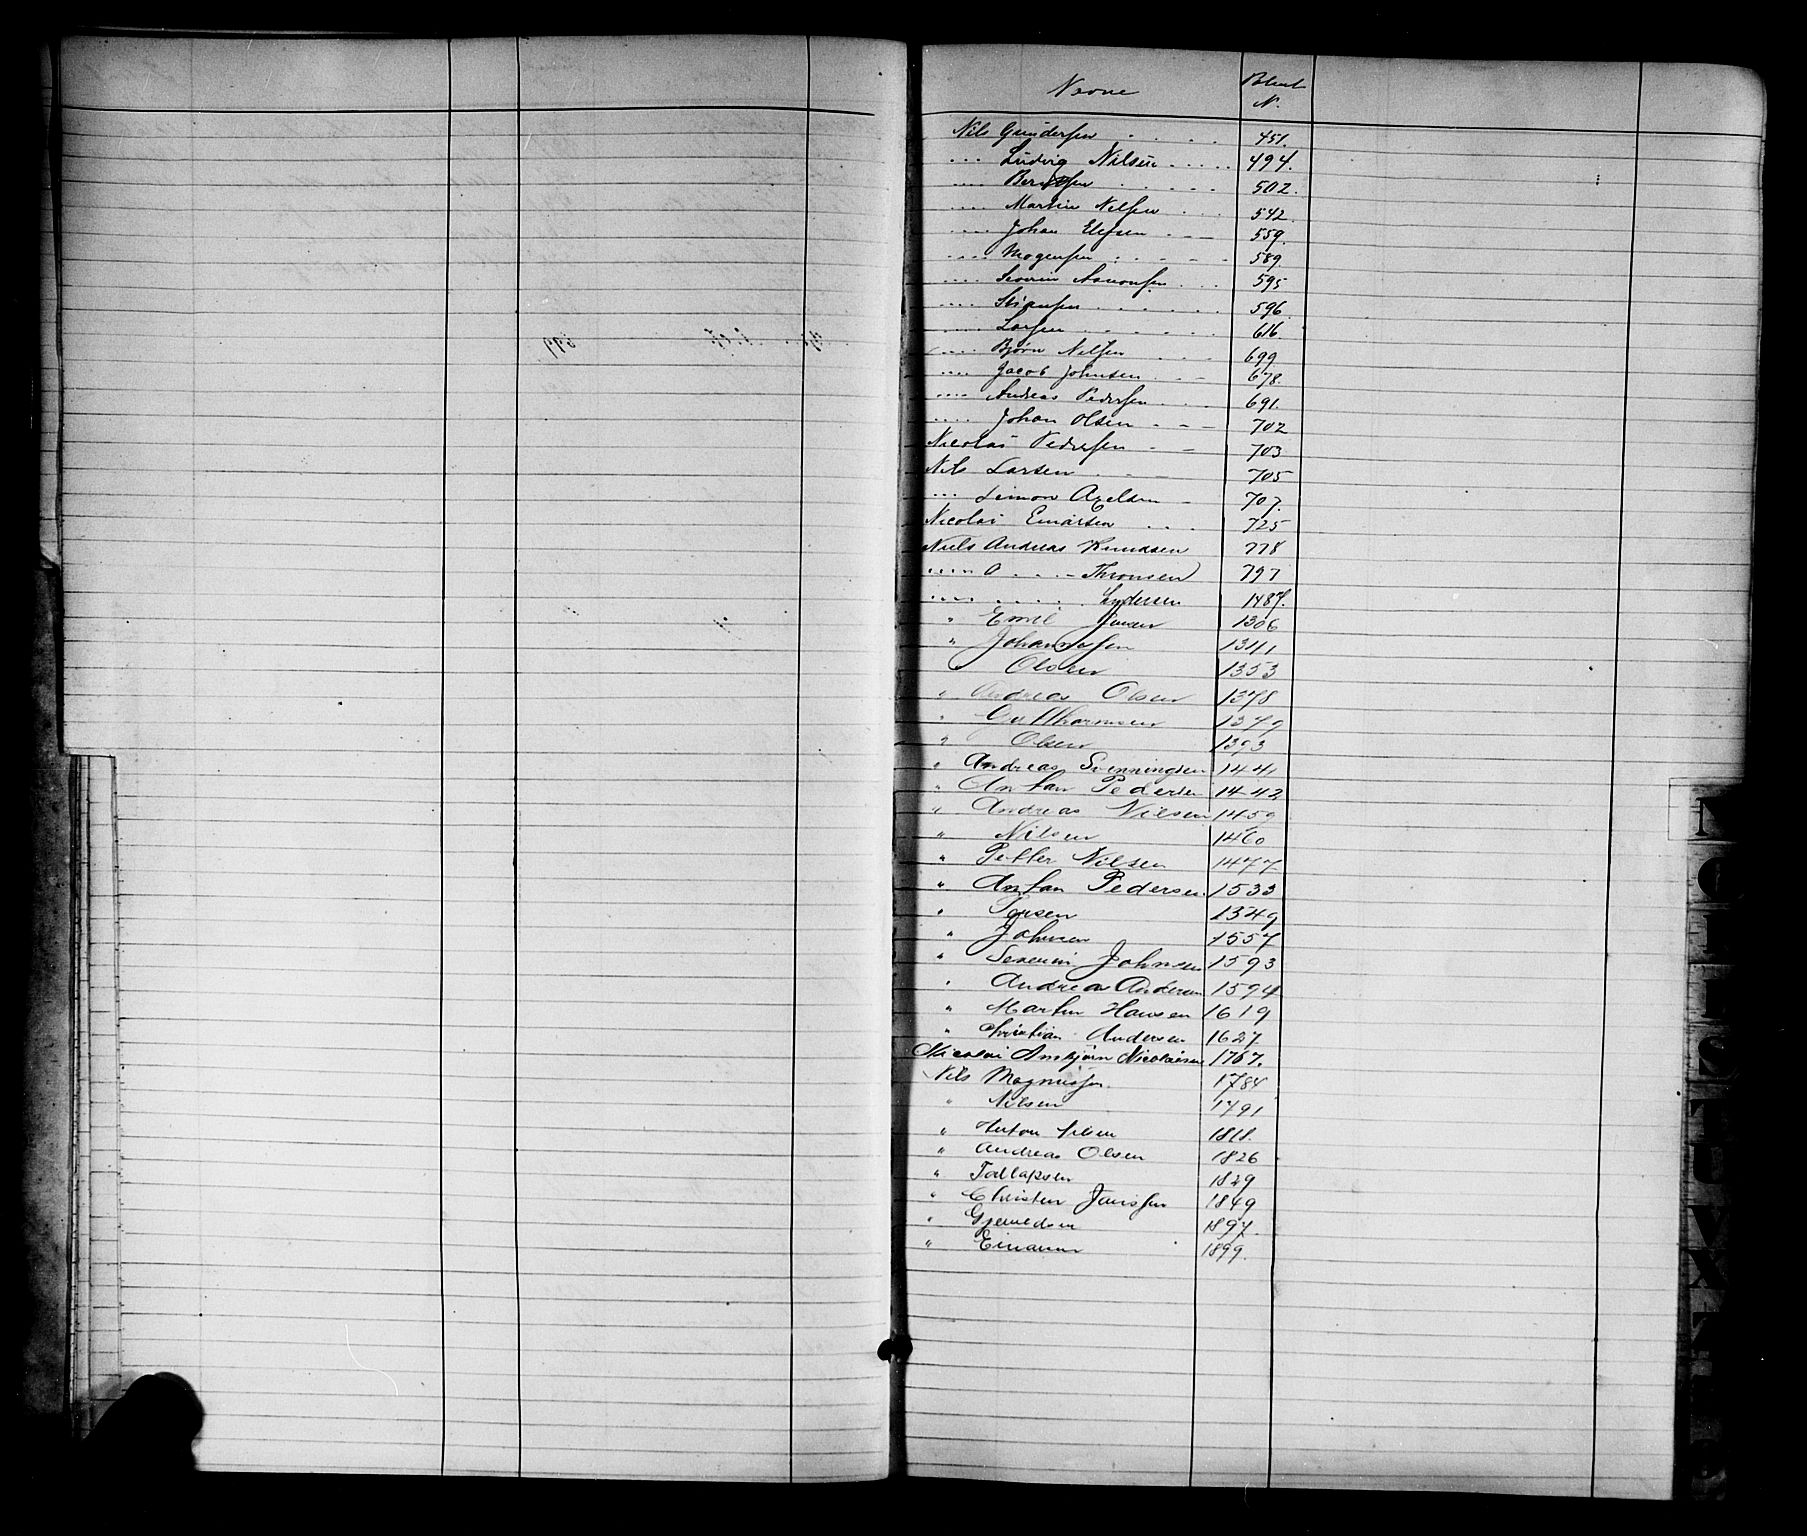 Navne Patent
N.
Nils Gundersen . . . . 451.
.... Ludvig Nilsen . . . . 494.
.... Berntsen . . . . . 502.
.... Martin Nilsen . . . 542.
.... Johan Elefsen . - - 559.
.... Mogensen . . . - - 589.
.... Severin Aanonsen . . . 595
.... Stiansen . . . . . . 596
.... Larsen . . . . . . 616
.... Bjørn Nilsen . . . 699
.... Jacob Johnsen . . - 678.
.... Andreas Pedersen . . . 691.
.... Johan Olsen . - - 702
Nicolai Pedersen - - 703
Nils Larsen . - - 705
... Simon Axelsen - 707.
Nicolai Einarsen . . . 725
Niels Andreas Knudsen 778
..... A . . . - Thronsen 797
..... . . . . . Andersen 1487.
" Emil Jensen 1306
" Johannesen 1341
Olsen 1353
" Andreas Olsen 1378
" Gutthormsen 1379
" Olsen 1393
" Andreas Svenningsen 1441
" Anton Pedersen 1442
" Andreas Nilsen 1459
" Nilsen 1460
" Petter Nilsen 1477
" Anton Pedersen 1533
" Persen 1349
" Johnsen 1557
" Severin Johnsen 1593
" Andreas Andersen 1594
" Martin Hansen 1619
" Christian Andersen 1627.
Nicolai Ambjørn Nicolaisen 1767.
Nils Magnussen. 1784
" Nilsen 1791
" Anton Nilsen 1818.
" Andreas Olsen 1826
" Tallaksen 1829
" Christen Jenssen 1849
" Gjeruldsen 1897.
" Einarsen 1899.
N
S
T
U
V
X